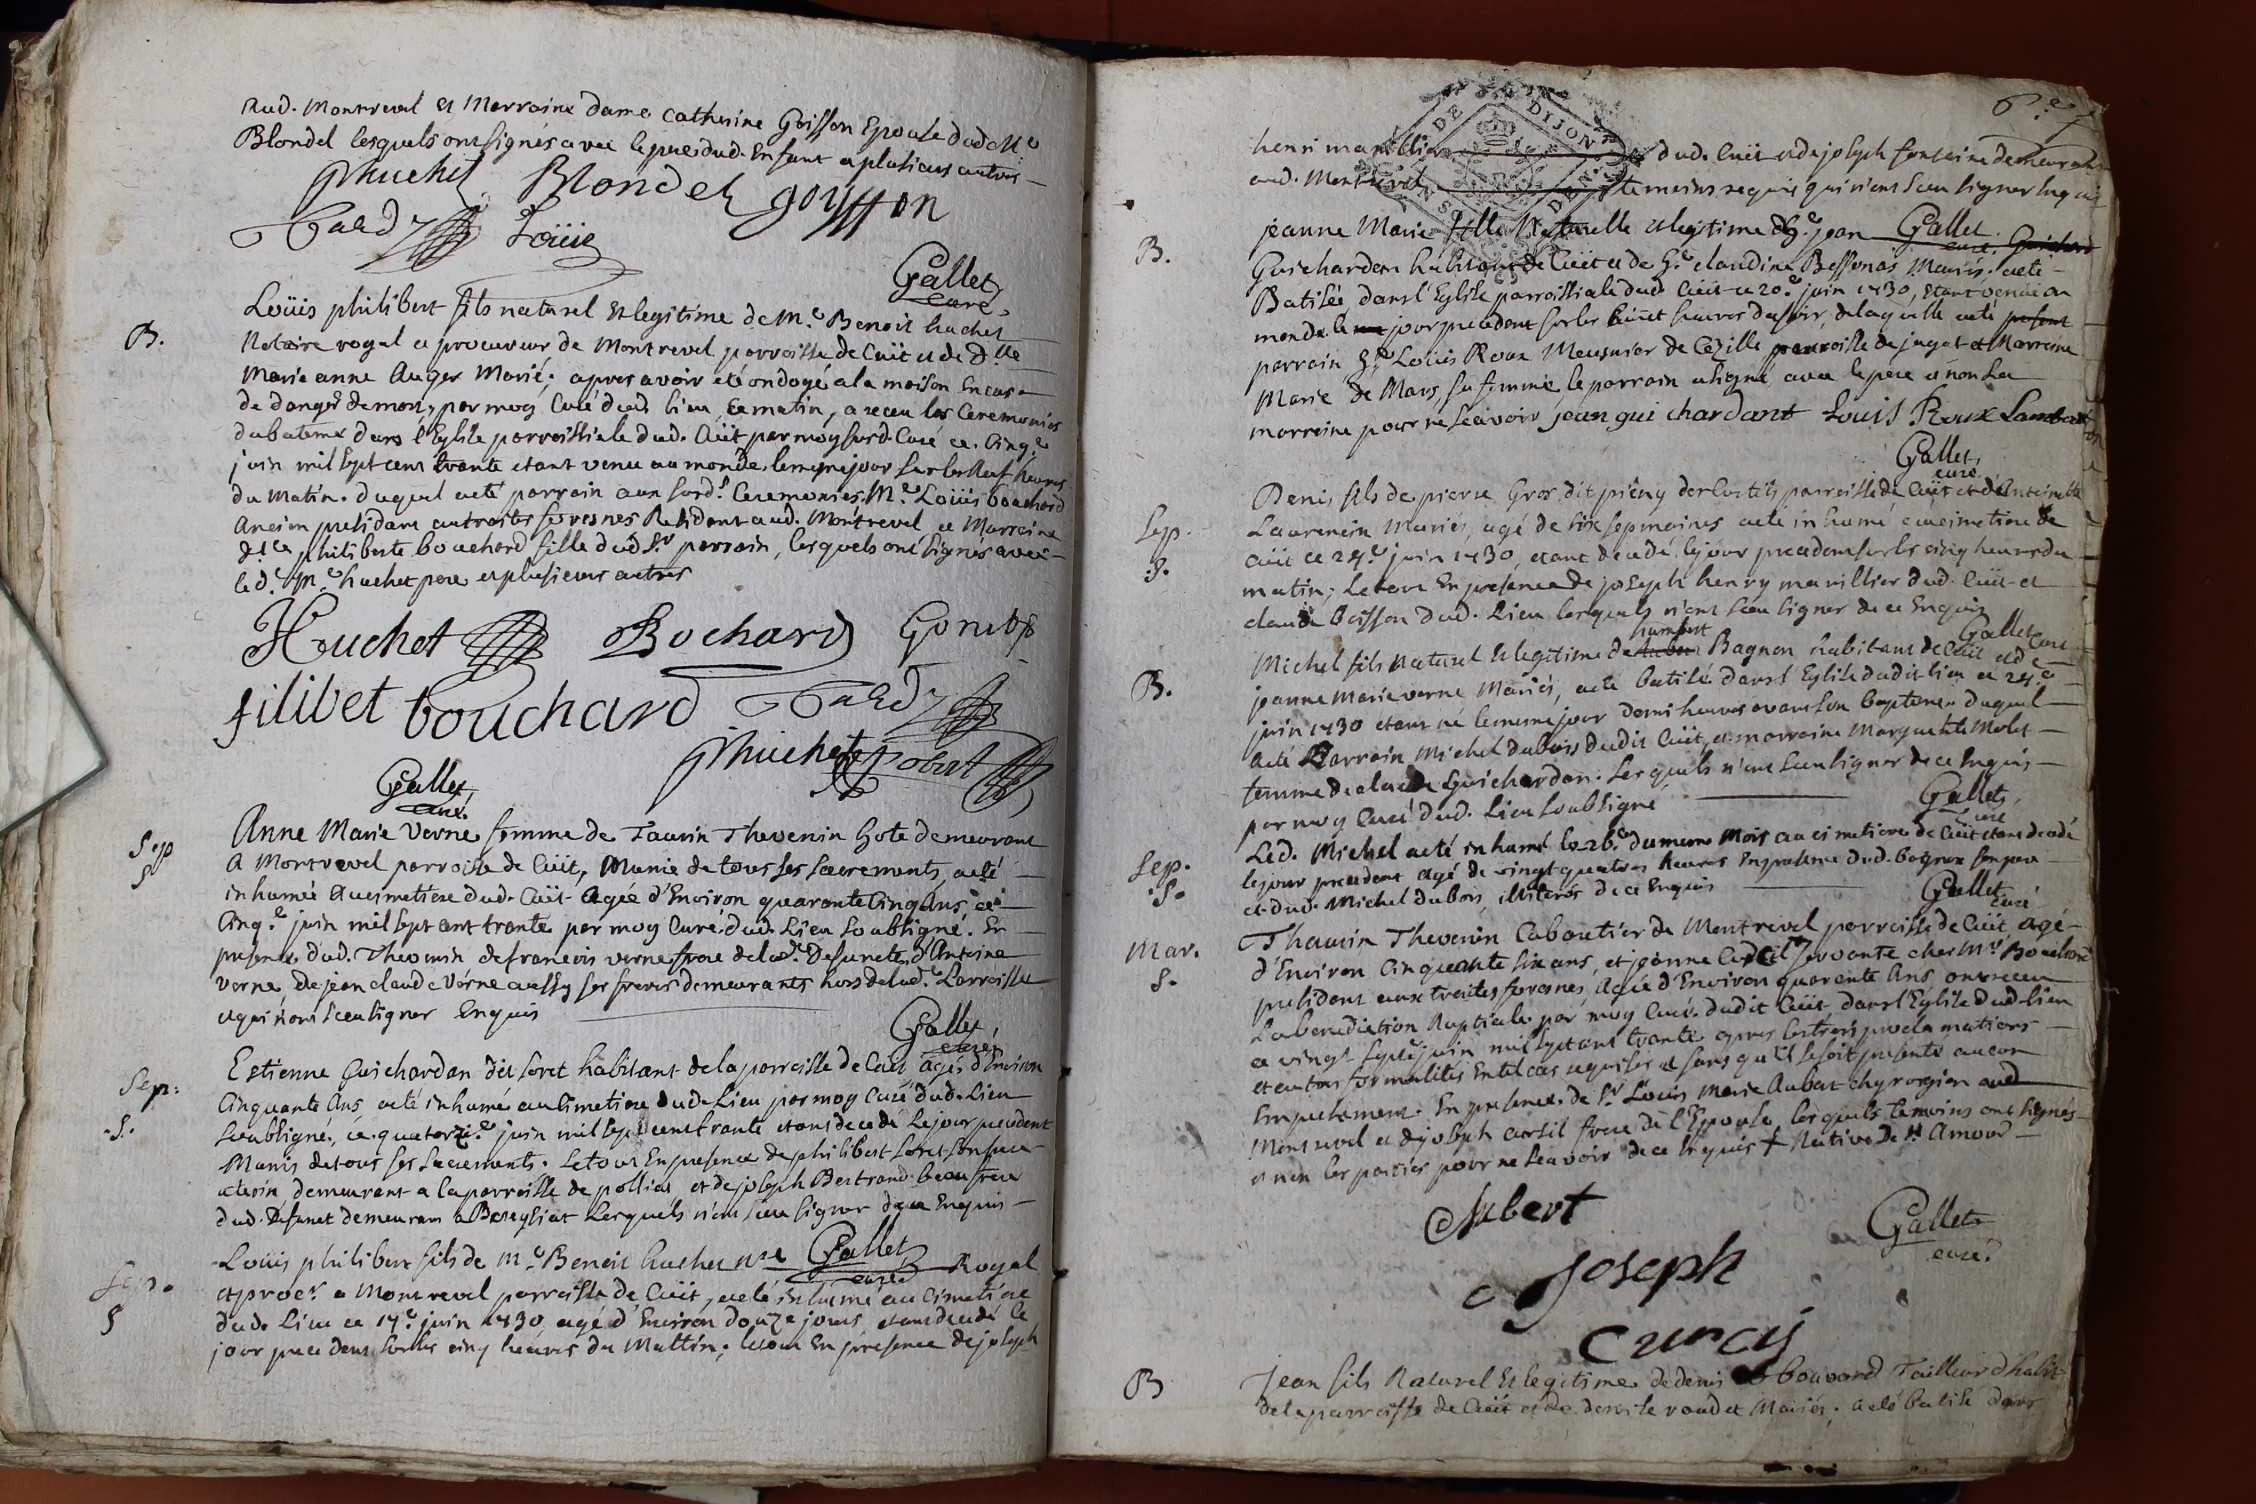 aud. Montrevel et Marraine dame Catherine Goisson Epouse dud. Me
Blondel lesquels ont signés avec le pere dud. Enfant et plusieurs autres
Jhuchet Blondel goisson
Tardy Loüis
Gallet
curé
B.
Loüis philibert fils naturel et legitime de Me. Benoit huchet
Notaire royal et procureur de Montrevel parroisse de Cüit et de dlle
Marie anne Auger Mariés; apres avoir eté ondoyé a la maison en cas
de danger de mort, par moy Curé dud. lieu, ce matin, a receu les Ceremonies
du bateme dans l'Eglise parroissiale dud. Cüit par moy surd. Curé ce Cinqe
juin mil sept cent trante etant venu au monde le meme jour sur les Neuf heures
du Matin. duquel a eté parrain aux surd. Ceremonies, Me. Loüis bouchard
Ancien president aux traites foresnes Resident aud. Montrevel et Marraine
dlle philiberte bouchard fille dud Sr. parrain, lesquels ont signés avec
led. Me. huchet pere et plusieurs autres
Huchet Bochard
filibet bouchard Tardy
Jhuchet Robert
Gallet
curé
Sep
S
Anne Marie Verne femme de Taurin Thevenin hote demeurant
A Montrevel parroisse de Cüit, Munie de tous ses sacrements, a eté
inhumée au cimetiere dud. Cüit agée d'Environ quarante Cinq Ans, ce
Cinqe. juin mil sept cent trante par moy Curé dud. Lieu soubsigné. En
presence dud. Thevenin de francois verne frere de lad. Defuncte, d'Antoine
verne, de jean claude Verne aussy ses freres demeurants hors de lad. Parroisse
et qui n'ont sceu signer Enquis
Gallet
curé
Sep.
S.
Estienne Guichardan dit Loret habitant de la parroisse de Cuit agés d'Environ
Cinquante Ans a eté inhumé au Cimetiere dud. Lieu par moy Curé dud. Lieu
soubsigné, ce quatorzie. juin mil sept cent trante etant decedé Le jour precedent
Munis de tous ses Sacrements. Le tout En presence de philibert Loret son
demeurant a la parroisse de polliat et de joseph Bertrand beau frere
dud. Defunct demeurant a Bereyziat Lesquels n'ont sceu signer de ce Enquis
Gallet
curé
Sep.
S
Loüis philibert fils de Me. Benoit huchet Nre Royal
et procr. a Montrevel parroisse de Cüit, a eté inhumé au Cimetiere
dud. Lieu ce 17e. juin 1730 agé d'Environ douze jours etant decedé le
jour precedent sur les cinq heures du Mattin; le tout En presence de joseph
DE DIJON
henri marillier dud. Cuit et de joseph fontaine demeurant
aud. Montrevel temoins requis qui n'ont sceu signer Enquis
Gallet
curé
B.
jeanne Marie fille Naturelle et legitime d'he. jean Guichard
Guichardan habitant de Cüit et de he. claudine Bessonas Mariés. a eté
Batisée dans l'Eglise parroissiale dud Cüit ce 20e. juin 1730, etant venüe au
monde le jour precedent sur les huit heures du soir, de laquelle a eté
parrain he. Loüis Roux Meusnier de Cezille parroisse de jayat et Marraine
Marie de Mars sa femme le parrain a signé avec le pere et non La
marreine pour ne sçavoir jean guichardant Louis Roux
Gallet
curé
Sep.
S.
Denis fils de pierre Gros dit des Curtils parroisse de Cüit et d'Antoinette
Laurencin Mariés, agé de six sepmaines a eté inhumé au cimetiere de
Cuit ce 24e. juin 1730, etant decedé le jour precedent sur les cinq heures du
matin; Le tout En presence de joseph henry marillier dud. Cüit et
claude boisson dud. Lieu lesquels n'ont sceu signer de ce Enquis
Gallet
curé
B.
Michel fils Naturel et legitime de humbert Bagnon habitant de Cuit et de
jeanne Marie verne Mariés, a eté batisé dans l'Eglise dudit lieu ce 24e.
juin 1730 etant né le meme jour demi heure avant son baptême. Duquel
a eté Parrain Michel dubois dudit Cüit, et marraine Marguerite Molet
femme de claude Guichardan. Lesquels n'ont sceu signer de ce Enquis
par moy Curé dud. Lieu soubsigné
Gallet
curé
Sep.
S.
Led. Michel a eté inhumé le 26e. du meme Mois au cimetiere de Cüit etant decedé
le jour precedent agé de vingt quatres heures En presence dud. bagnon son pere
et dud. Michel dubois, illiterés de ce Enquis
Gallet
curé
Mar.
S.
Thaurin Thevenin Cabaretier de Montrevel parroisse de Cüit, agé
d'Environ Cinquante six ans, et jeanne Curcil servante chez Mr. Bouchard
president aux traites foresnes, Agée d'Environ quarante Ans, ont receu
La benediction Nuptiale par moy Curé dudit Cüit, dans l'Eglise dud. lieu
ce vingt septe. juin mil sept cent trante apres les trois proclamations
et autres formalités En tel cas requises et sans qu'il se soit presenté aucun
Empechement. En presence de Sr. Loüis Marie Aubert chyrurgien aud
Montrevel et de joseph cursil frere de l'Epouse, lesquels temoins ont signés
et non les parties pour ne sçavoir de ce Enquis + Native de St. Amour
Aubert
Gallet
curé
Joseph
curcij
B
Jean fils Naturel et legitime de denis bouvard Tailleur d'habit
de la parroisse de Cüit et de denise roudet Mariés; a eté batisé dans